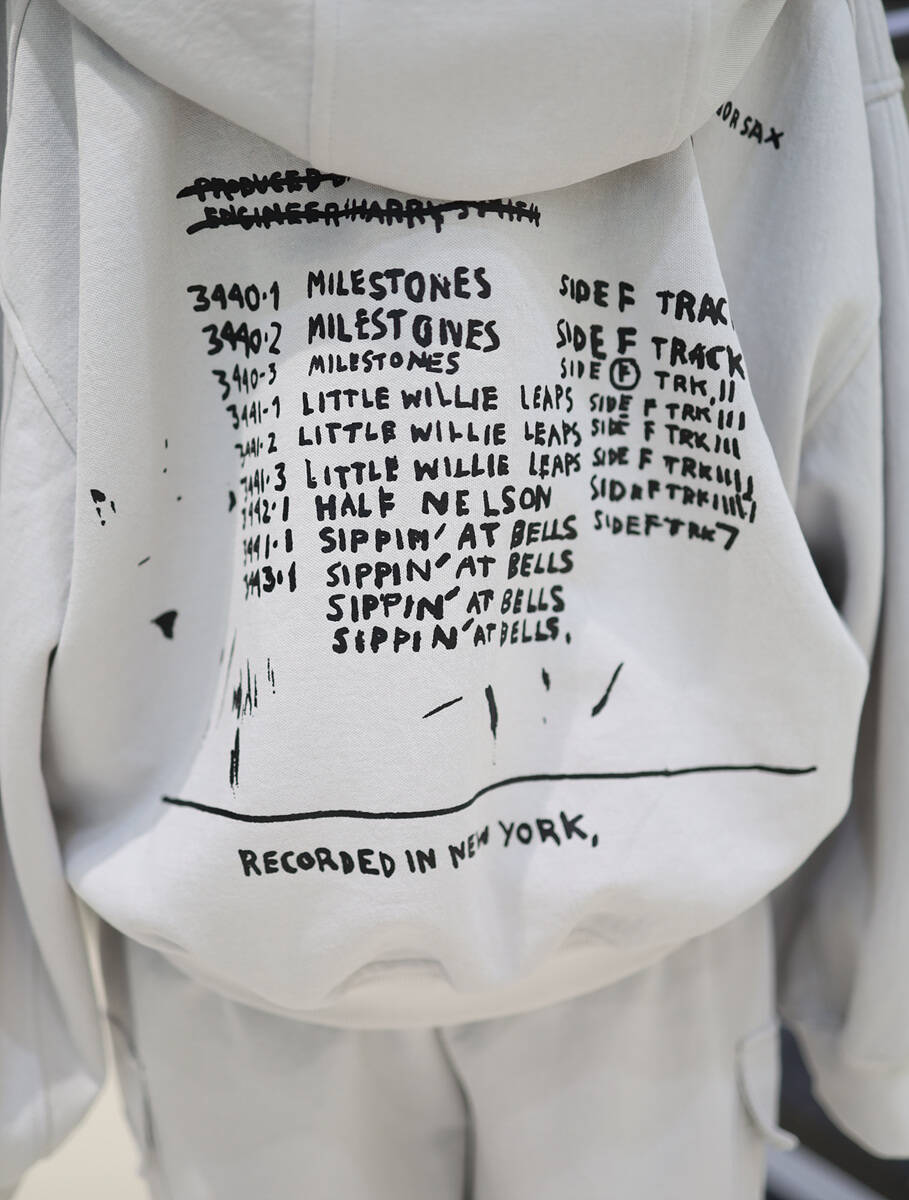 SAX
PRODUCED
ENGINEER "HARRY SMITH"
3440.1 MILESTONES SIDE F TRAC
3440.2 MILESTONES SIDE F TRACK
3440-3 MILESTONES SIDE F TRK.II
3441-1 LITTLE WILLIE LEAPS SIDE F TRK III
3441.2 LITTLE WILLIE LEAPS SIDE F TRK IIII
3441.3 LITTLE WILLIE LEAPS SIDE F TRK IIIII
3442.1 HALF NELSON SIDE F TRK IIIIII
SIPPIN' AT BELLS SIDE F TRK 7
3443.1 SIPPIN' AT BELLS
SIPPIN' AT BELLS
SIPPIN' AT BELLS.
RECORDED IN NEW YORK,